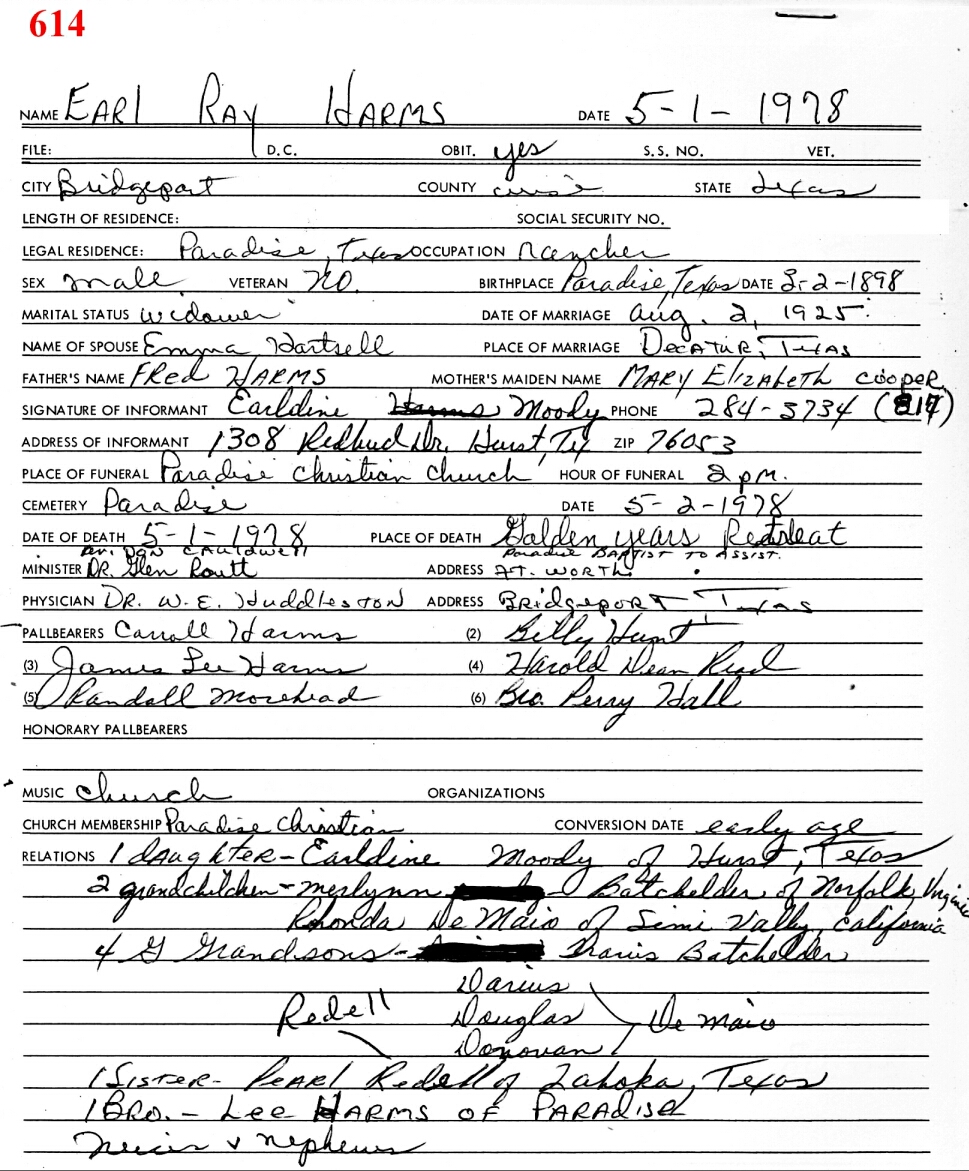 614
NAME EARl RAY HARMS DATE 5-1-1978
FILE: D.C. OBIT. yes S.S. NO. VET.
CITY Bridgeport COUNTY wise STATE Texas
LENGTH OF RESIDENCE: SOCIAL SECURITY NO.
LEGAL RESIDENCE: Paradise, Texas OCCUPATION Rancher
SEX male VETERAN NO. BIRTHPLACE Paradise, Texas DATE 3-2-1898
MARITAL STATUS widower DATE OF MARRIAGE Aug. 2, 1925
NAME OF SPOUSE Emma Hartsell PLACE OF MARRIAGE DECATUR, TEXAS
FATHER'S NAME FRed HARMS MOTHER'S MAIDEN NAME MARY ElizAbeth cooper
SIGNATURE OF INFORMANT Earldine Harms Moody PHONE 284-3734 (817)
ADDRESS OF INFORMANT 1308 Redbud Dr. Hurst, Tx ZIP 76053
PLACE OF FUNERAL Paradise Christian Church HOUR OF FUNERAL 2 pm.
CEMETERY Paradise DATE 5-2-1978
DATE OF DEATH 5-1-1978 PLACE OF DEATH Golden years Retreat
DON CAULDWELL PARADISE BAPTIST TO ASSIST.
MINISTER DR. Glen Routt ADDRESS FT. WORTH
PHYSICIAN DR. W. E. Huddleston ADDRESS BRidgepoRT TEXAS
PALLBEARERS Carroll Harms (2) Billy Hunt
(3) James Lee Harms (4) Harold Dean Reed
(5) Randall Morehead (6) Bro. Perry Hall
HONORARY PALLBEARERS
MUSIC church ORGANIZATIONS
CHURCH MEMBERSHIP Paradise Christian CONVERSION DATE early age
RELATIONS 1 daughter - Earldine Moody of Hurst, Texas
2 grandchildren - merlynn Batchelder of Norfolk, Virginia
Rhonda De Maio of Simi Valley, California
4 G Grandsons - Travis Batchelder
Darius
Redell Douglas De Maio
Donovan
1 SisTER - PEARl Redell of Tahoka, Texas
1 BRO. - Lee HARMS OF PARADISE
Neices & nephews